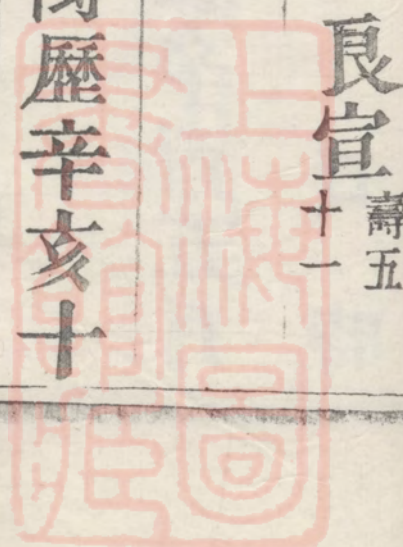 良宣 壽五十一
歷辛亥十
上海圖書館藏